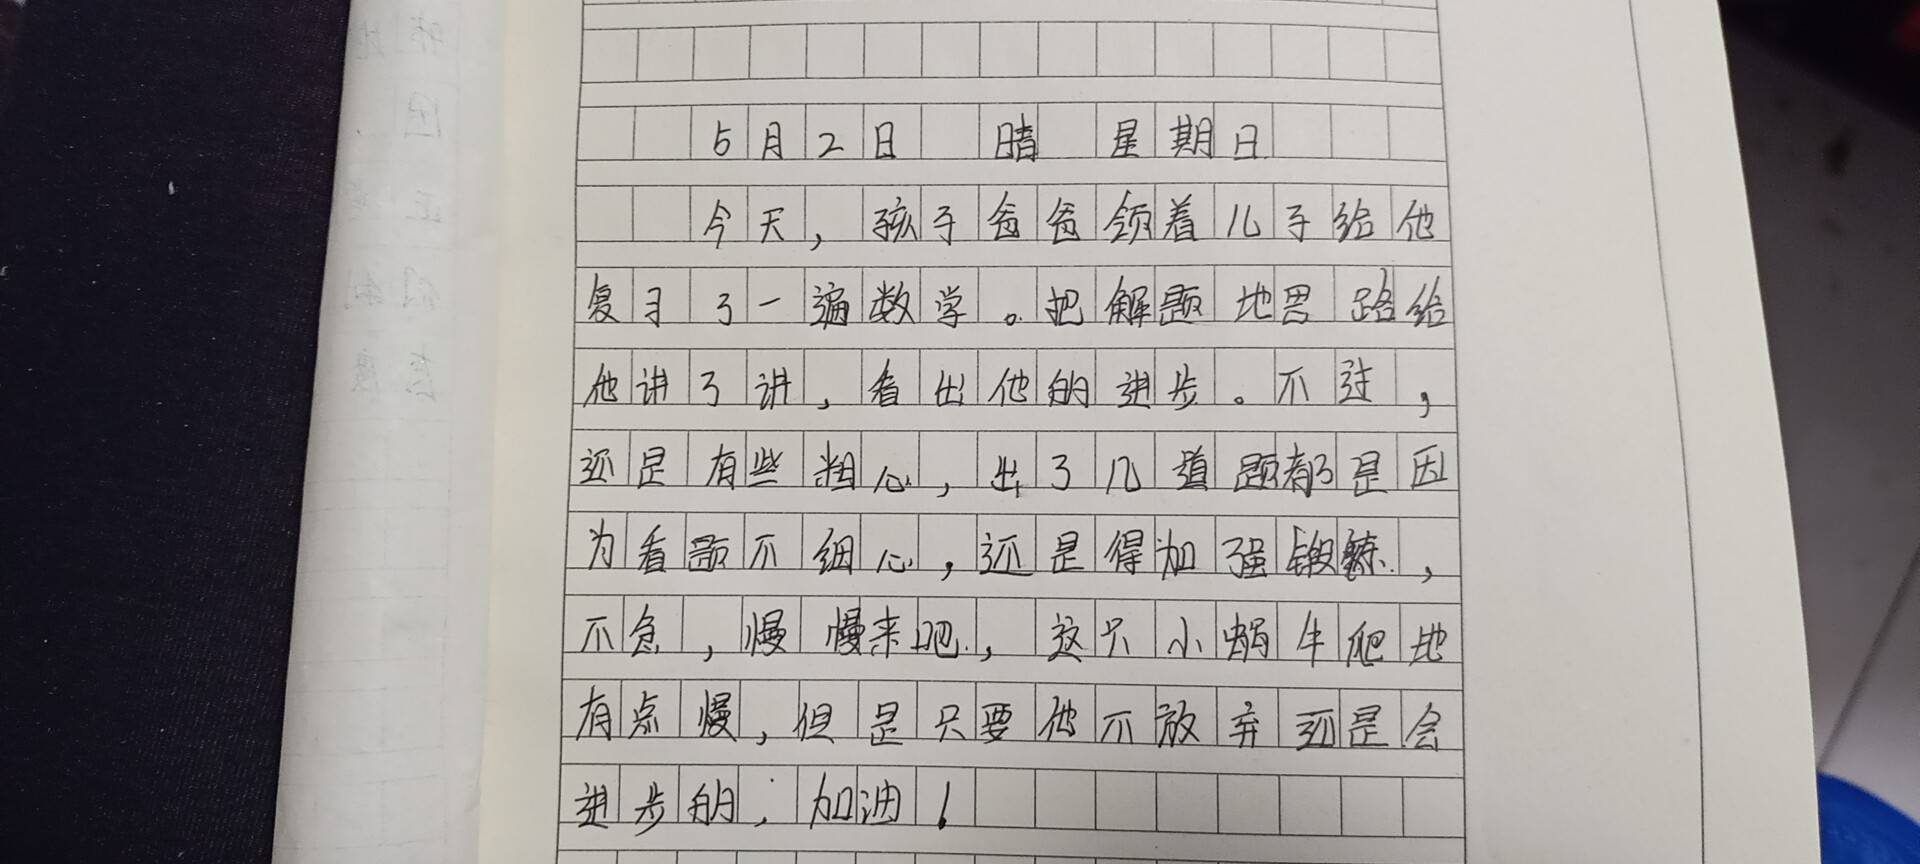 5月2日 晴 星期日
今天，孩子爸爸领着儿子给他
复习了一遍数学。把解题地思路给
他讲了讲，看出他的进步。不过，
还是有些粗心，出了几道题都是因
为看题不细心，还是得加强锻鍊，
不急，慢慢来吧，这只小蜗牛爬地
有点慢，但是只要他不放弃还是会
进步的，加油！